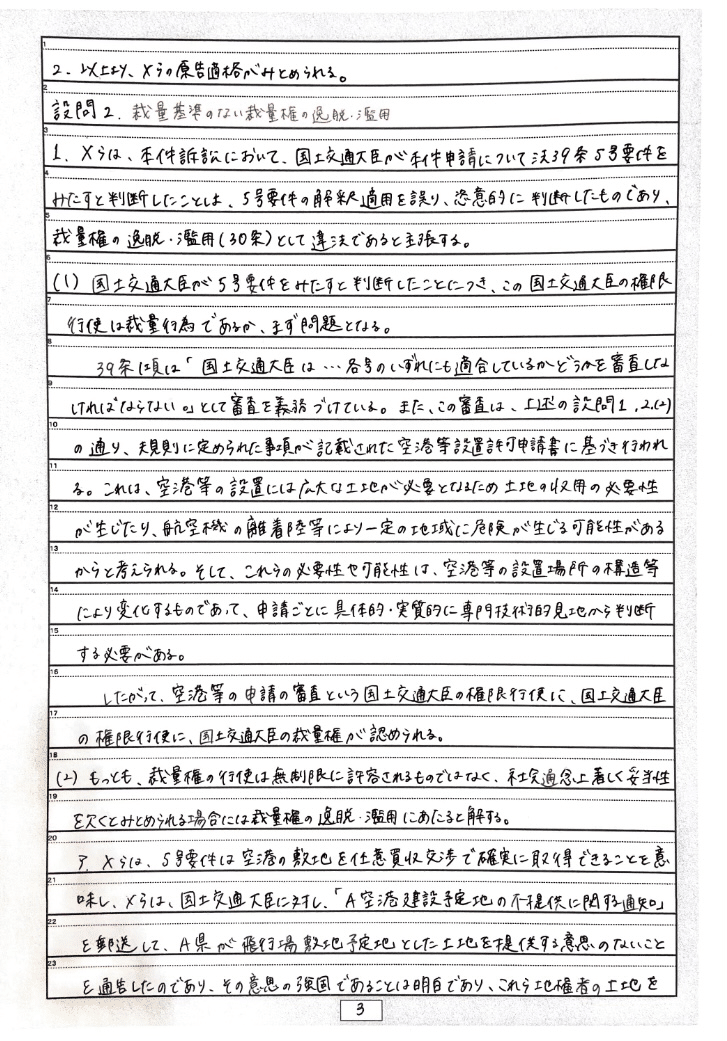 2. 以上より、Xらの原告適格がみとめられる。
設問2. 裁量基準のない裁量権の逸脱・濫用
1. Xらは、本件訴訟において、国土交通大臣が本件申請について法39条5号要件を
みたすと判断したことは、5号要件の解釈適用を誤り、恣意的に判断したものであり、
裁量権の逸脱・濫用(30条)として違法であると主張する。
(1) 国土交通大臣が5号要件をみたすと判断したことにつき、この国土交通大臣の権限
行使は裁量行為であるか、まず問題となる。
39条1項は「国土交通大臣は…各号のいずれにも適合しているかどうかを審査しな
ければならない。」として審査を義務づけている。また、この審査は、上述の設問1.2.(2)
の通り、規則に定められた事項が記載された空港等設置許可申請書に基づき行われ
る。これは、空港等の設置には広大な土地が必要となるため土地の収用の必要性
が生じたり、航空機の離着陸等により一定の地域に危険が生じる可能性がある
からと考えられる。そして、これらの必要性や可能性は、空港等の設置場所の構造等
により変化するものであって、申請ごとに具体的・実質的に専門技術的見地から判断
する必要がある。
したがって、空港等の申請の審査という国土交通大臣の権限行使に、国土交通大臣
の権限行使に、国土交通大臣の裁量権が認められる。
(2) もっとも、裁量権の行使は無制限に許容されるものではなく、社会通念上著しく妥当性
を欠くとみとめられる場合には裁量権の逸脱・濫用にあたると解する。
ア. Xらは、5号要件は空港の敷地を任意買収交渉で確実に取得できることを意
味し、Xらは、国土交通大臣に対し、「A空港建設予定地の不提供に関する通知」
を郵送して、A県が飛行場敷地予定地とした土地を提供する意思のないこと
を通告したのであり、その意思の強固であることは明白であり、これら地権者の土地を
3